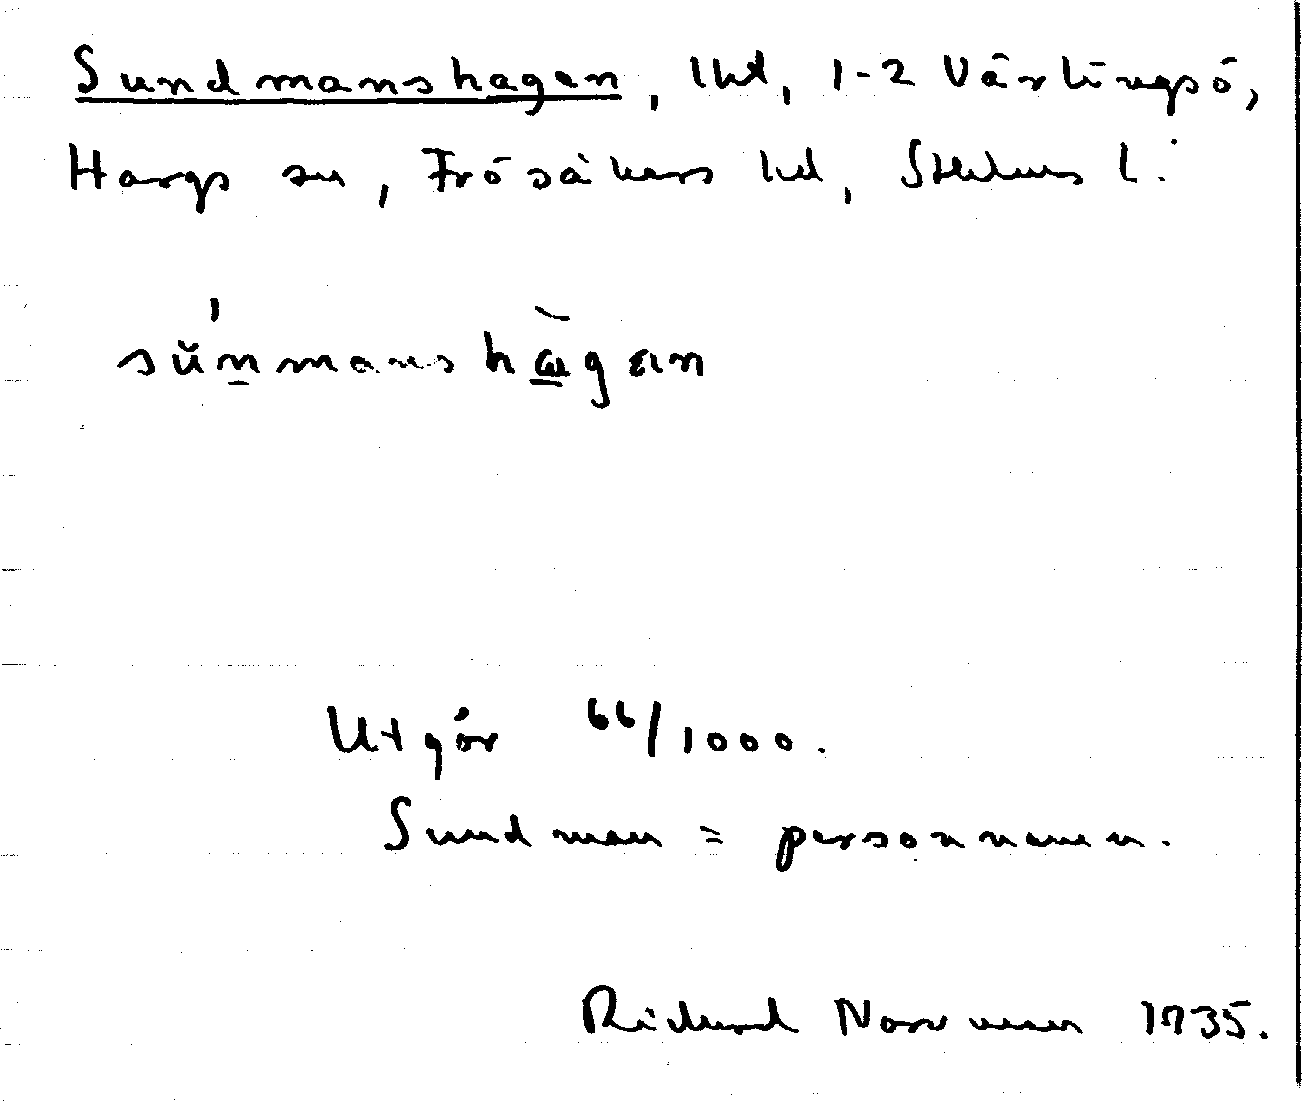 Sundmanshagen, lht, 1-2 Värlingsö,
Hargs sn, Frösåkers hd, Sthlms l.
Utgör 66/1000.
Sundman = personnamn.
Richard Norrman 1935.